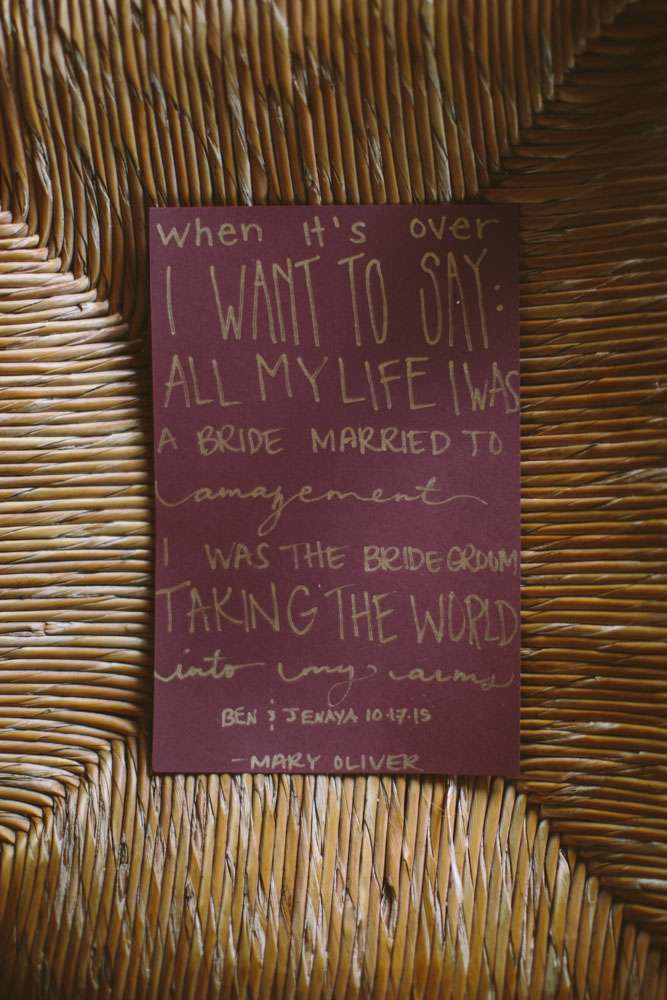 when it's over
I WANT TO SAY:
ALL MY LIFE I WAS
A BRIDE MARRIED TO
amazement
I WAS THE BRIDEGROOM
TAKING THE WORLD
into my arms
BEN & JENAYA 10·17·15
- MARY OLIVER